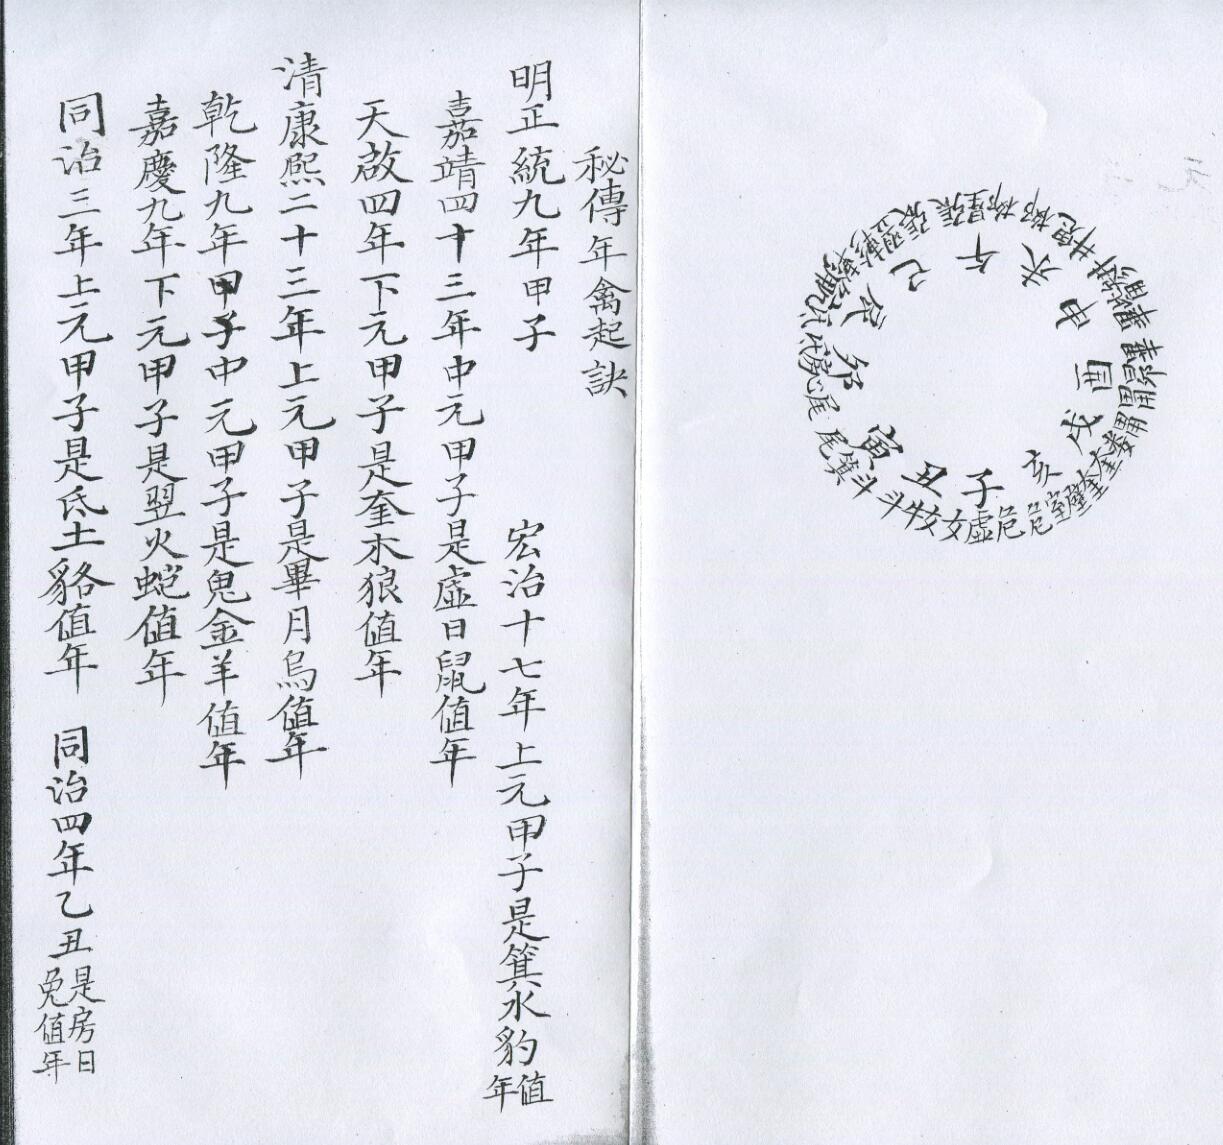 子丑寅卯辰巳午未申酉戌亥
尾箕斗斗牛女女虛危危室壁
秘傳年禽起訣
明正統九年甲子　宏治十七年上元甲子是箕水豹值年
嘉靖四十三年中元甲子是虛日鼠值年
天啟四年下元甲子是奎木狼值年
清康熙二十三年上元甲子是畢月烏值年
乾隆九年甲子中元甲子是鬼金羊值年
嘉慶九年下元甲子是翌火蛇值年
同治三年上元甲子是氐土貉值年　同治四年乙丑是房日兔值年